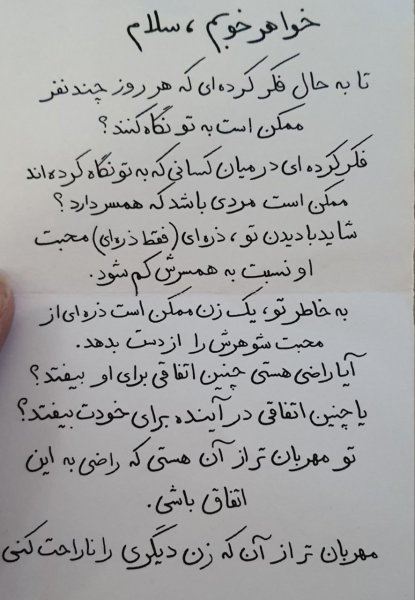 خواهر خوبم ، سلام
تا به حال فکر کرده‌ای که هر روز چند نفر
ممکن است به تو نگاه کنند ؟
فکر کرده ای در میان کسانی که به تو نگاه کرده اند
ممکن است مردی باشد که همسر دارد ؟
شاید با دیدن تو ، ذره‌ای (فقط ذره‌ای) محبت
او نسبت به همسرش کم شود .
به خاطر تو ، یک زن ممکن است ذره‌ای از
محبت شوهرش را از دست بدهد .
آیا راضی هستی چنین اتفاقی برای او بیفتد ؟
یا چنین اتفاقی در آینده برای خودت بیفتد ؟
تو مهربان تر از آن هستی که راضی به این
اتفاق باشی .
مهربان تر از آن که زن دیگری را ناراحت کنی